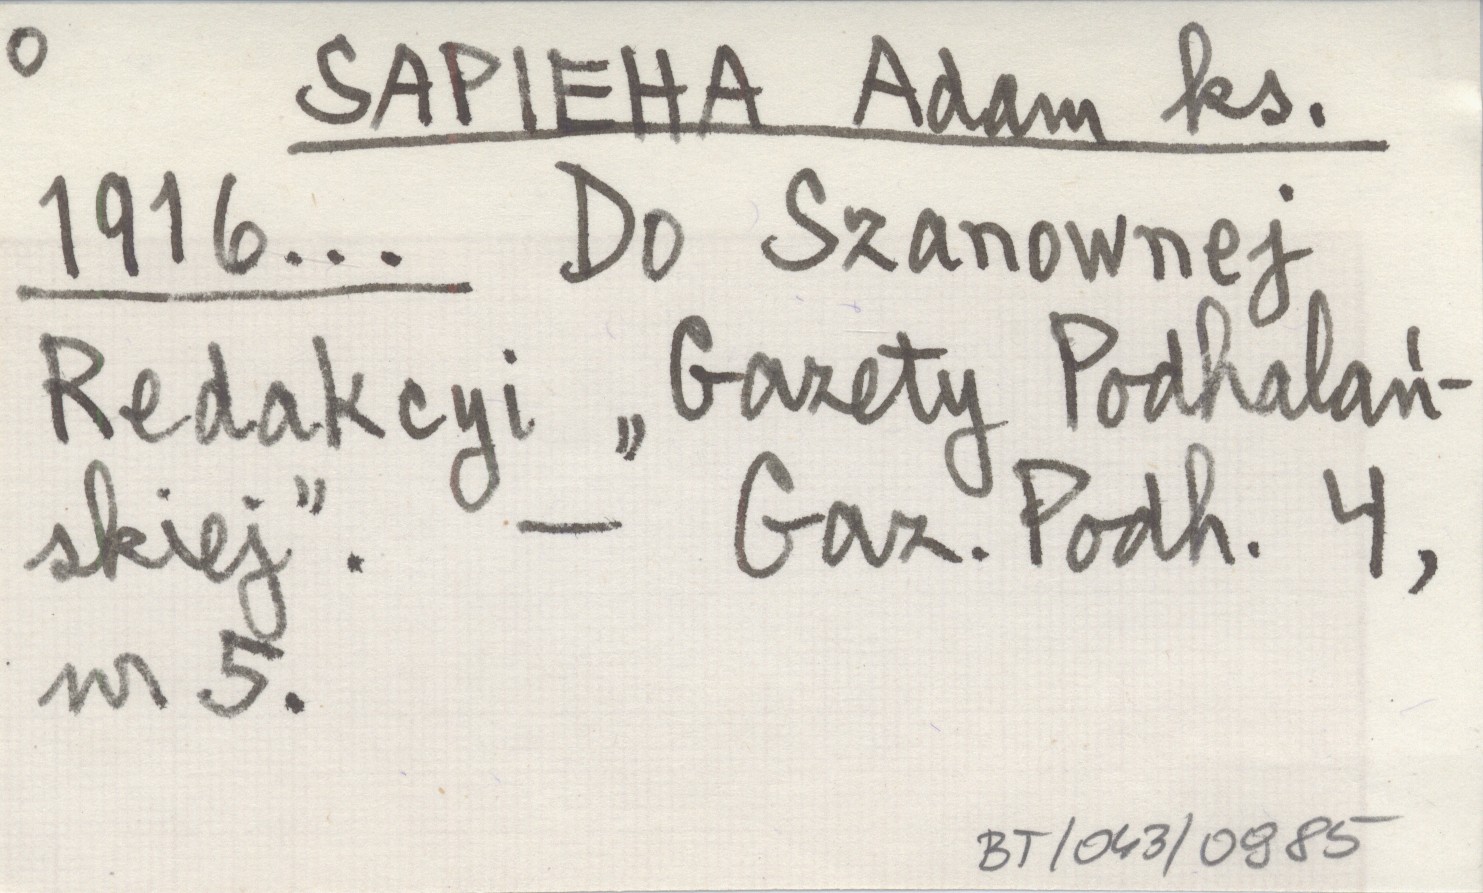 o SAPIEHA Adam ks.
1916... Do Szanownej
Redakcyi „Gazety Podhalań-
skiej". — Gaz. Podh. 4,
nr 5.
BT/043/0985